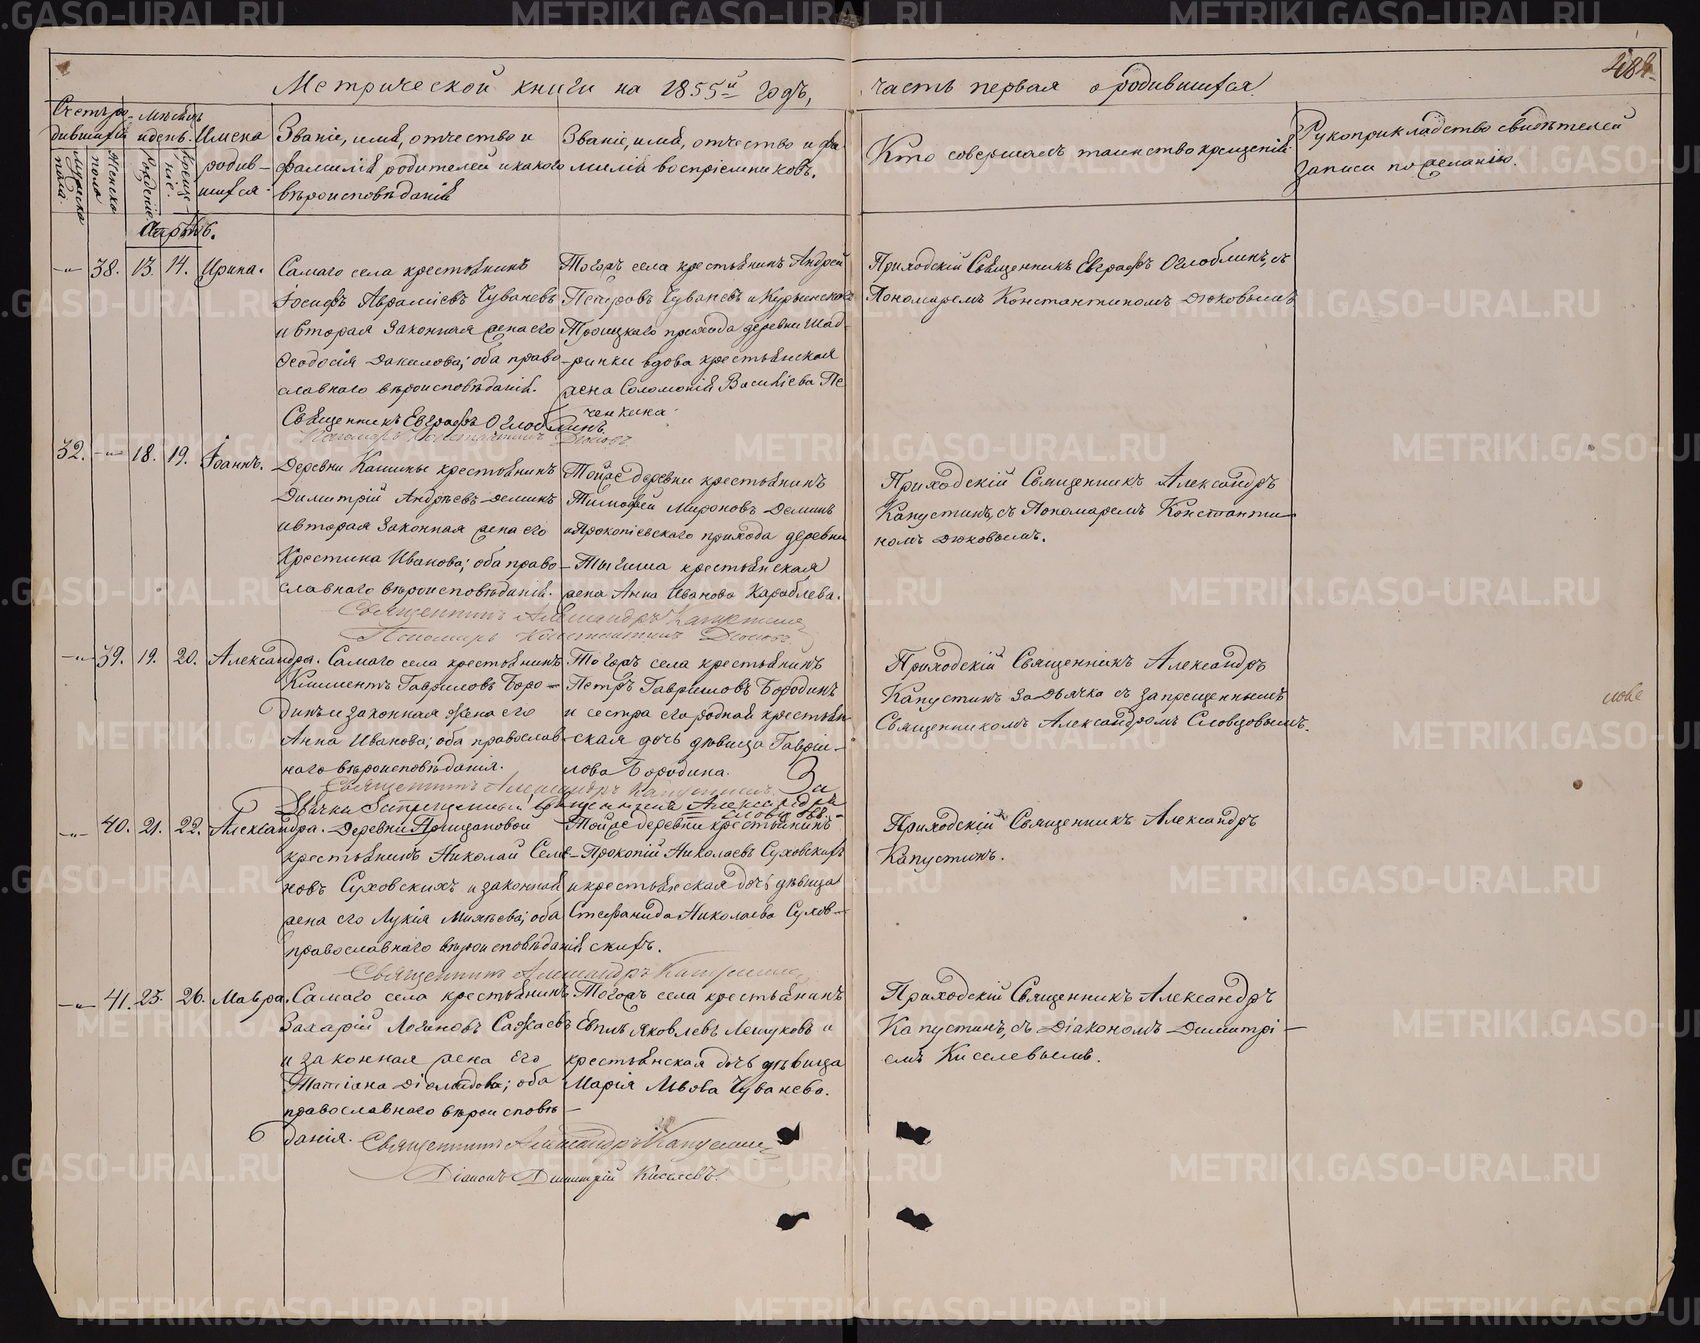 Метрической книги на 1855й годъ, часть первая о родившихся.
Счетъ ро-
дившихся
Мужеска
пола.
Женска
пола
Мѣсяцъ
и день.
Рожденіе
Креще-
ніе.
Имена
родив-
шихся.
Званіе, имя, отчество и
фамилія родителей и какого
вѣроисповѣданія
Званіе, имя, отчество и фа-
милія воспріемниковъ.
Кто совершалъ таинство крещенія.
Рукоприкладство свидѣтелей
записи по желанію.
Апрѣль.
-"- 38. 13. 14. Ирина.
Самаго села крестьянинъ
Іосифъ Аврамiевъ Чуваневъ
и вторая законная жена его
Ѳеодосія Данилова; оба право-
славнаго вѣроисповѣданія.
Тогожъ села крестьянинъ Андрей
Чуваневъ и
Троицкаго прихода деревни Шад-
ринки вдова крестьянская
жена Соломонія Василіева Пе
ченкина.
Приходскій Священникъ Евграфъ Оглоблинъ, съ
Пономаремъ Константиномъ Дюковымъ
Священникъ Евграфъ Оглоблинъ.
Пономарь Константинъ Дюковъ
32. -"- 18. 19. Іоаннъ.
Деревни крестьянинъ
Димитрій Андрѣевъ Деминъ
и вторая законная жена его
Крестина Иванова; оба право-
славнаго вѣроисповѣданія.
Тойже деревни крестьянинъ
Тимофей Мироновъ Деминъ
и Прокопіевскаго прихода деревни
крестьянская
жена Анна Иванова Караблева.
Приходскій Священникъ Александръ
Капустинъ, съ Пономаремъ Константи-
номъ Дюковымъ.
Священникъ Александръ Капустинъ
Пономарь Константинъ Дюковъ
-"- 39. 19. 20. Александра.
Самаго села крестьянинъ
Климентъ Гавриловъ Боро-
динъ и законная жена его
Анна Иванова; оба православ-
наго вѣроисповѣданія.
Тогожъ села крестьянинъ
Петръ Гавриловъ Бородинъ
и сестра его родная крестьян
ская дочь дѣвица Гаврiи-
лова Бородина.
Приходскій Священникъ Александръ
Капустинъ за Дьячка съ запрещеннымъ
Священникомъ Александромъ Словцовымъ.
Священникъ Александръ Капустинъ. За
Дьячка Запрещенный Священникъ Александръ
Словцовъ.
-"- 40. 21. 22. Александра.
Деревни
крестьянинъ Николай
Суховскихъ и законная
жена его Лукія Михѣева; оба
православнаго вѣроисповѣданія
Тойже деревни крестьянинъ
Прокопій Николаевъ Суховскихъ
и крестьянская дочь дѣвица
Стефанида Николаева Сухов-
скихъ.
Приходскій Священникъ Александръ
Капустинъ.
Священникъ Александръ Капустинъ
-"- 41. 25. 26. Мавра.
Самаго села крестьянинъ
Захарій Логиновъ
и законная жена его
Татіана Діомидова; оба
православнаго вѣроисповѣ-
данія.
Тогожъ села крестьянинъ
Евплъ Яковлевъ Лещуковъ и
крестьянская дочь дѣвица
Марія Львова Чуванева.
Приходскій Священникъ Александръ
Капустинъ, съ Діакономъ Димитрі-
емъ Киселевымъ.
Священникъ Александръ Капустинъ
Діаконъ Димитрій Киселевъ.
METRIKI.GASO-URAL.RU